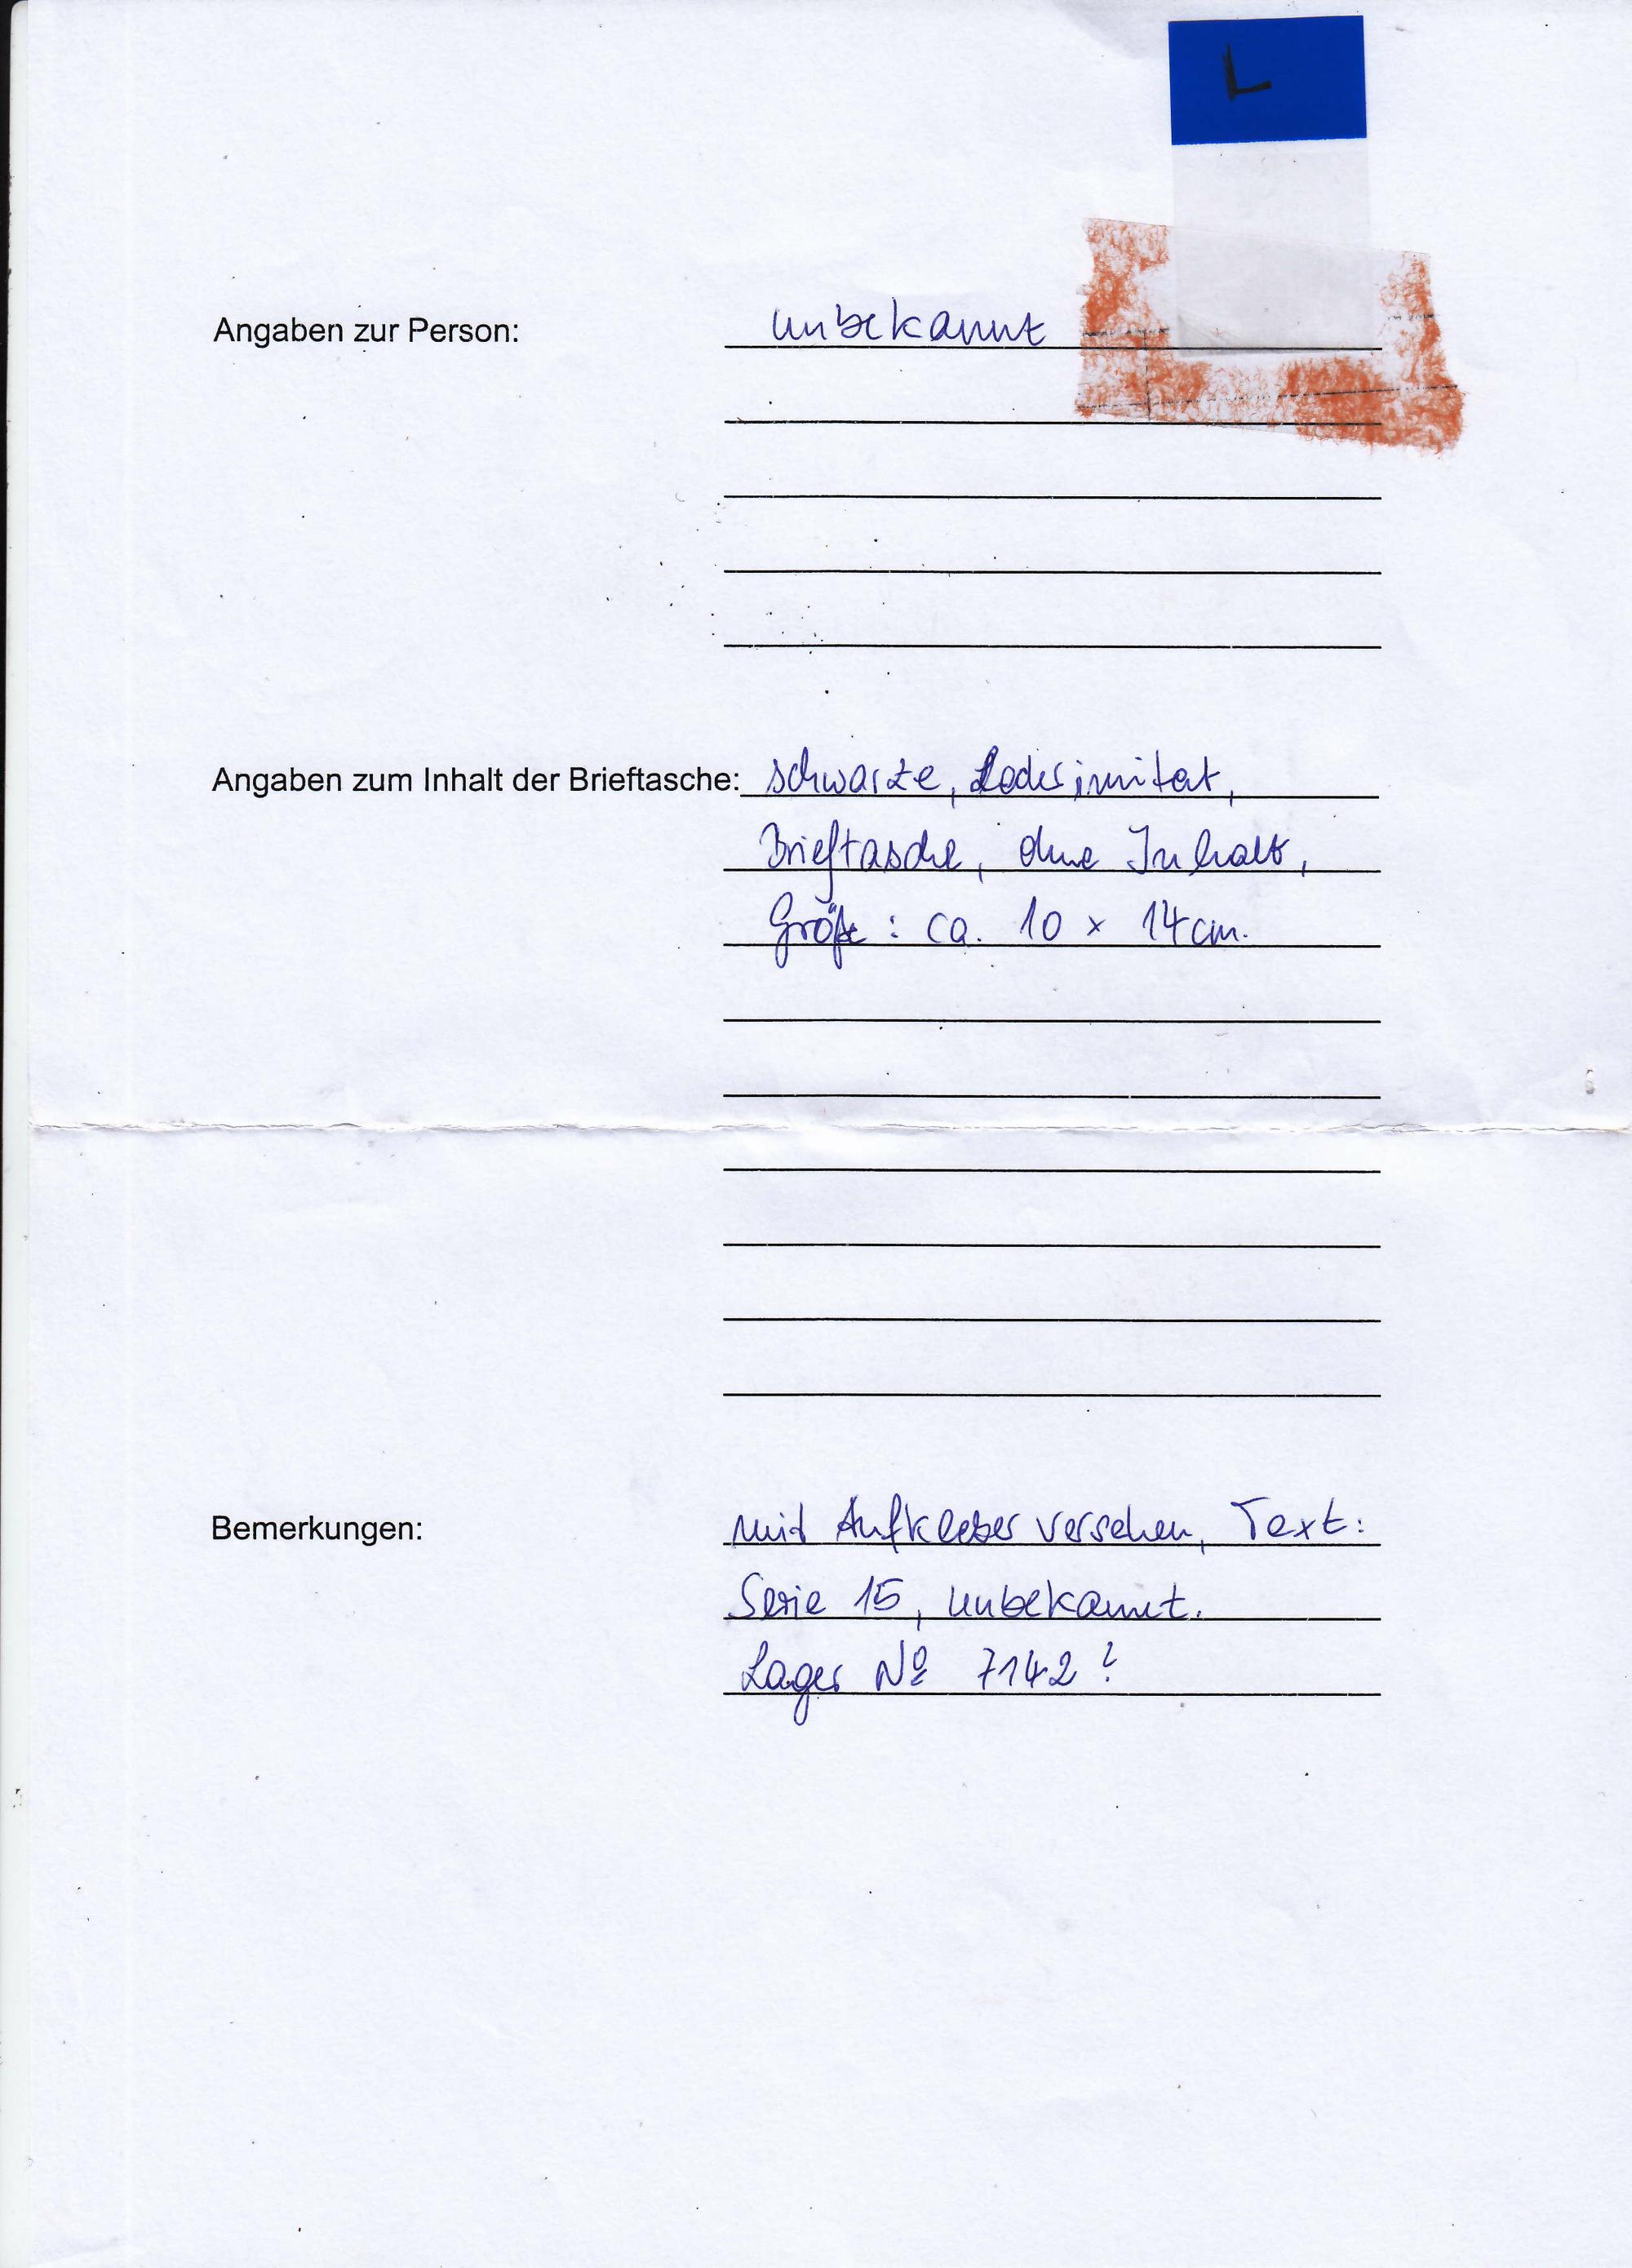 L
Angaben zur Person: unbekannt
Angaben zum Inhalt der Brieftasche: schwarze, Lederimitat,
Brieftasche, ohne Inhalt,
Größe: ca. 10 x 14 cm.
Bemerkungen: mit Aufkleber versehen, Text:
Serie 15, unbekannt.
Lager № 7142?